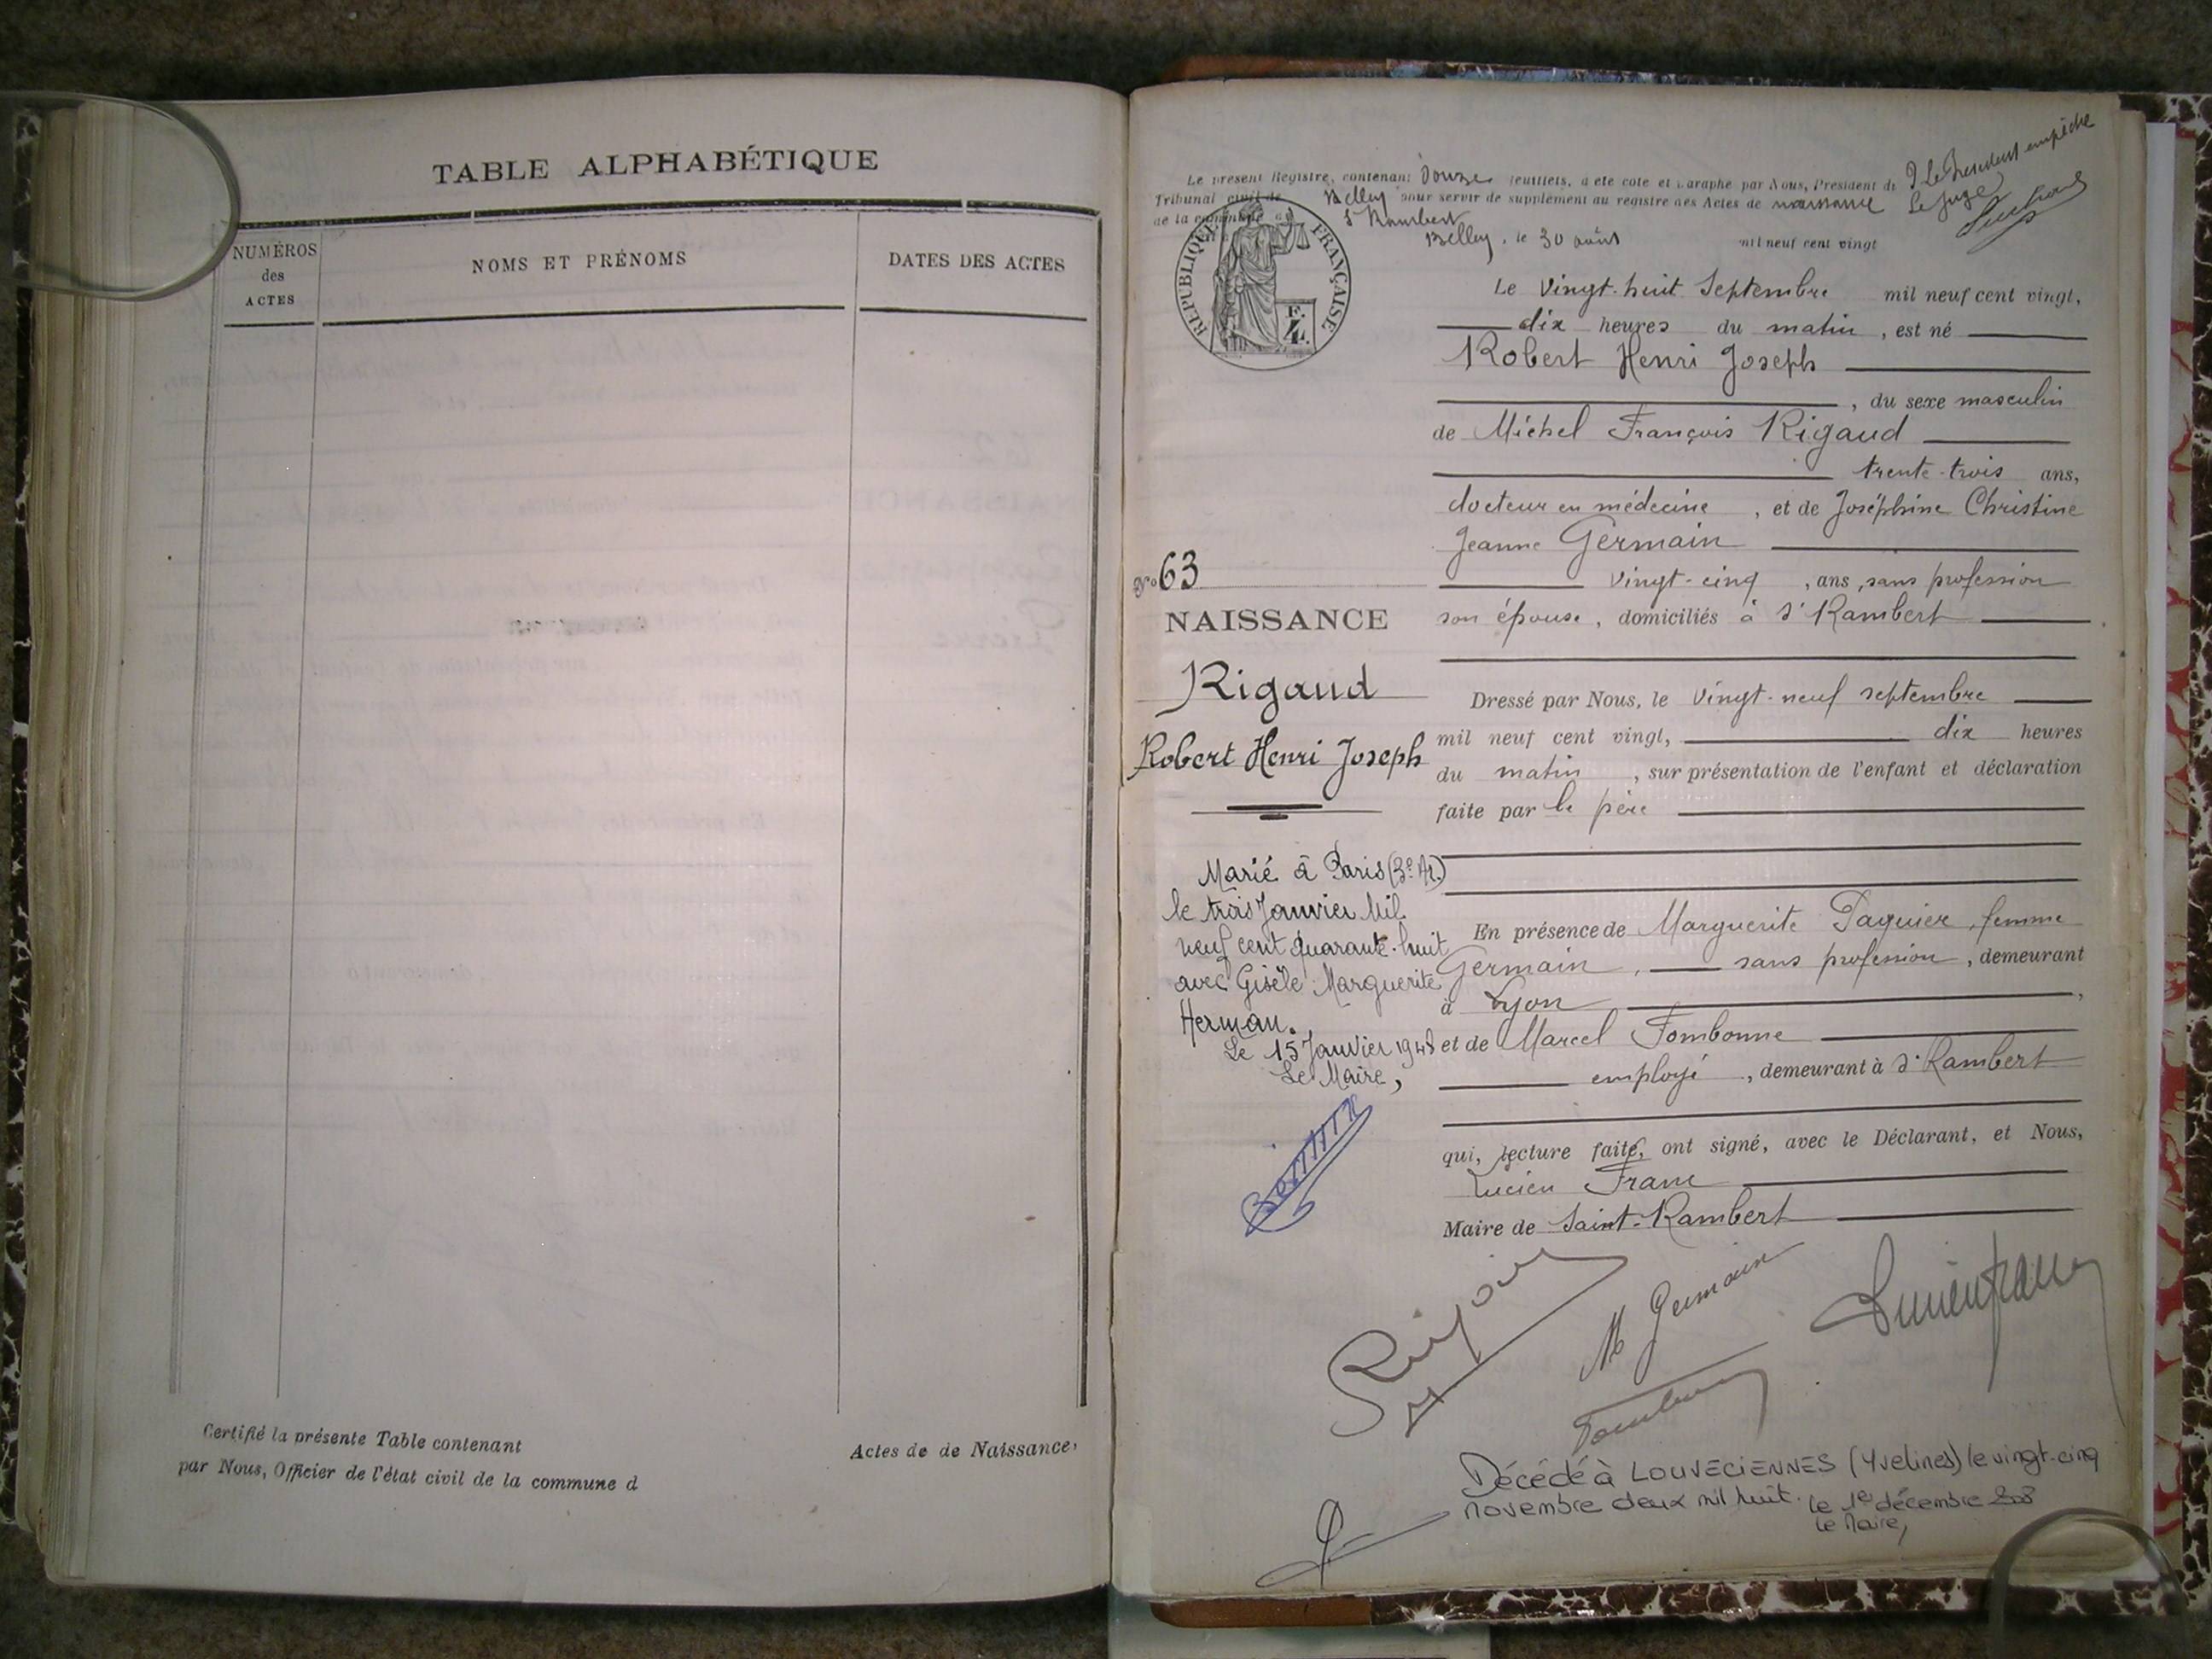 TABLE ALPHABÉTIQUE
NUMÉROS
des
ACTES
NOMS ET PRÉNOMS
DATES DES ACTES
Certifié la présente Table contenant
Actes de de Naissance,
par Nous, Officier de l'état civil de la commune d
Le présent Registre, contenant Douze feuillets, a été coté et paraphé par Nous, Président du
Tribunal civil de Belley pour servir de supplément au registre des Actes de naissance
de la commune de St Rambert
Belley, le 30 août mil neuf cent vingt
P Le Président empêché
Le Juge
RÉPUBLIQUE FRANÇAISE
F.
4.
Le vingt-huit Septembre mil neuf cent vingt,
dix heures du matin, est né
Robert Henri Joseph
, du sexe masculin
de Michel François Rigaud
trente-trois ans,
docteur en médecine, et de Joséphine Christine
Jeanne Germain
vingt-cinq, ans, sans profession
son épouse, domiciliés à St Rambert
No 63
NAISSANCE
Rigaud
Robert Henri Joseph
Dressé par Nous, le vingt-neuf septembre
mil neuf cent vingt, dix heures
du matin, sur présentation de l'enfant et déclaration
faite par le père
Marié à Paris (3e Ar.)
le trois Janvier Mil
neuf cent quarante-huit
avec Gisèle Marguerite
Herman.
Le 15 Janvier 1948
Le Maire,
En présence de Marguerite Paquier, femme
Germain, sans profession, demeurant
à Lyon,
et de Marcel Fombonne
employé, demeurant à St Rambert
qui, lecture faite, ont signé, avec le Déclarant, et Nous,
Lucien Franc
Maire de Saint-Rambert
Rigaud
M Germain
Lucien Franc
Fombonne
Décédé à LOUVECIENNES (Yvelines) le vingt-cinq
novembre deux mil huit. le 1er décembre 2008
le Maire,